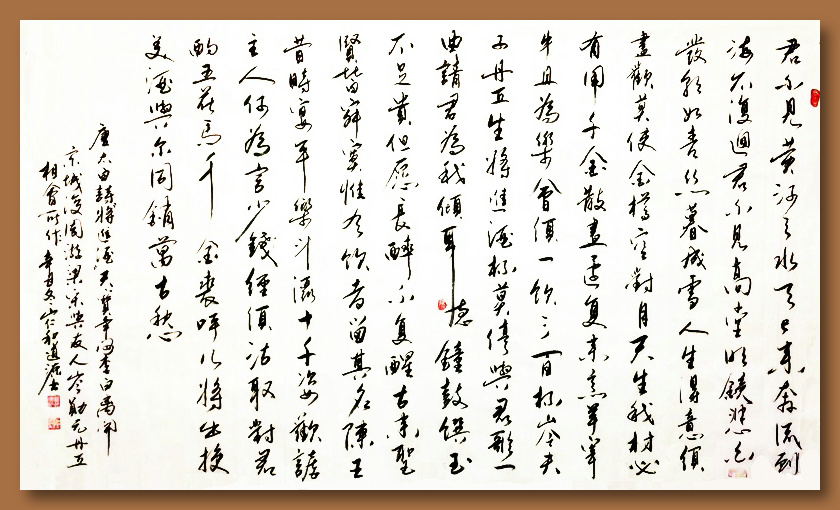 君不见黄河之水天上来奔流到
海不復迴君不见高堂明鏡悲白
髮朝如青丝暮成雪人生得意須
盡歡莫使金樽空對月天生我材必
有用千金散盡還复来烹羊宰
牛且為樂會須一饮三百杯岑夫
子丹丘生將進酒杯莫停與君歌一
曲請君為我傾耳聽鐘鼓饌玉
不足貴但愿長醉不复醒古来聖
賢皆寂寞惟有饮者留其名陳王
昔時宴平樂斗酒十千恣歡謔
主人何為言少錢徑須沽取對君
酌五花馬千金裘呼儿將出换
美酒與尔同銷萬古愁
唐李白詩將進酒天寶年間李白离開
京城後同游梁宋與友人岑勛元丹丘
相會所作